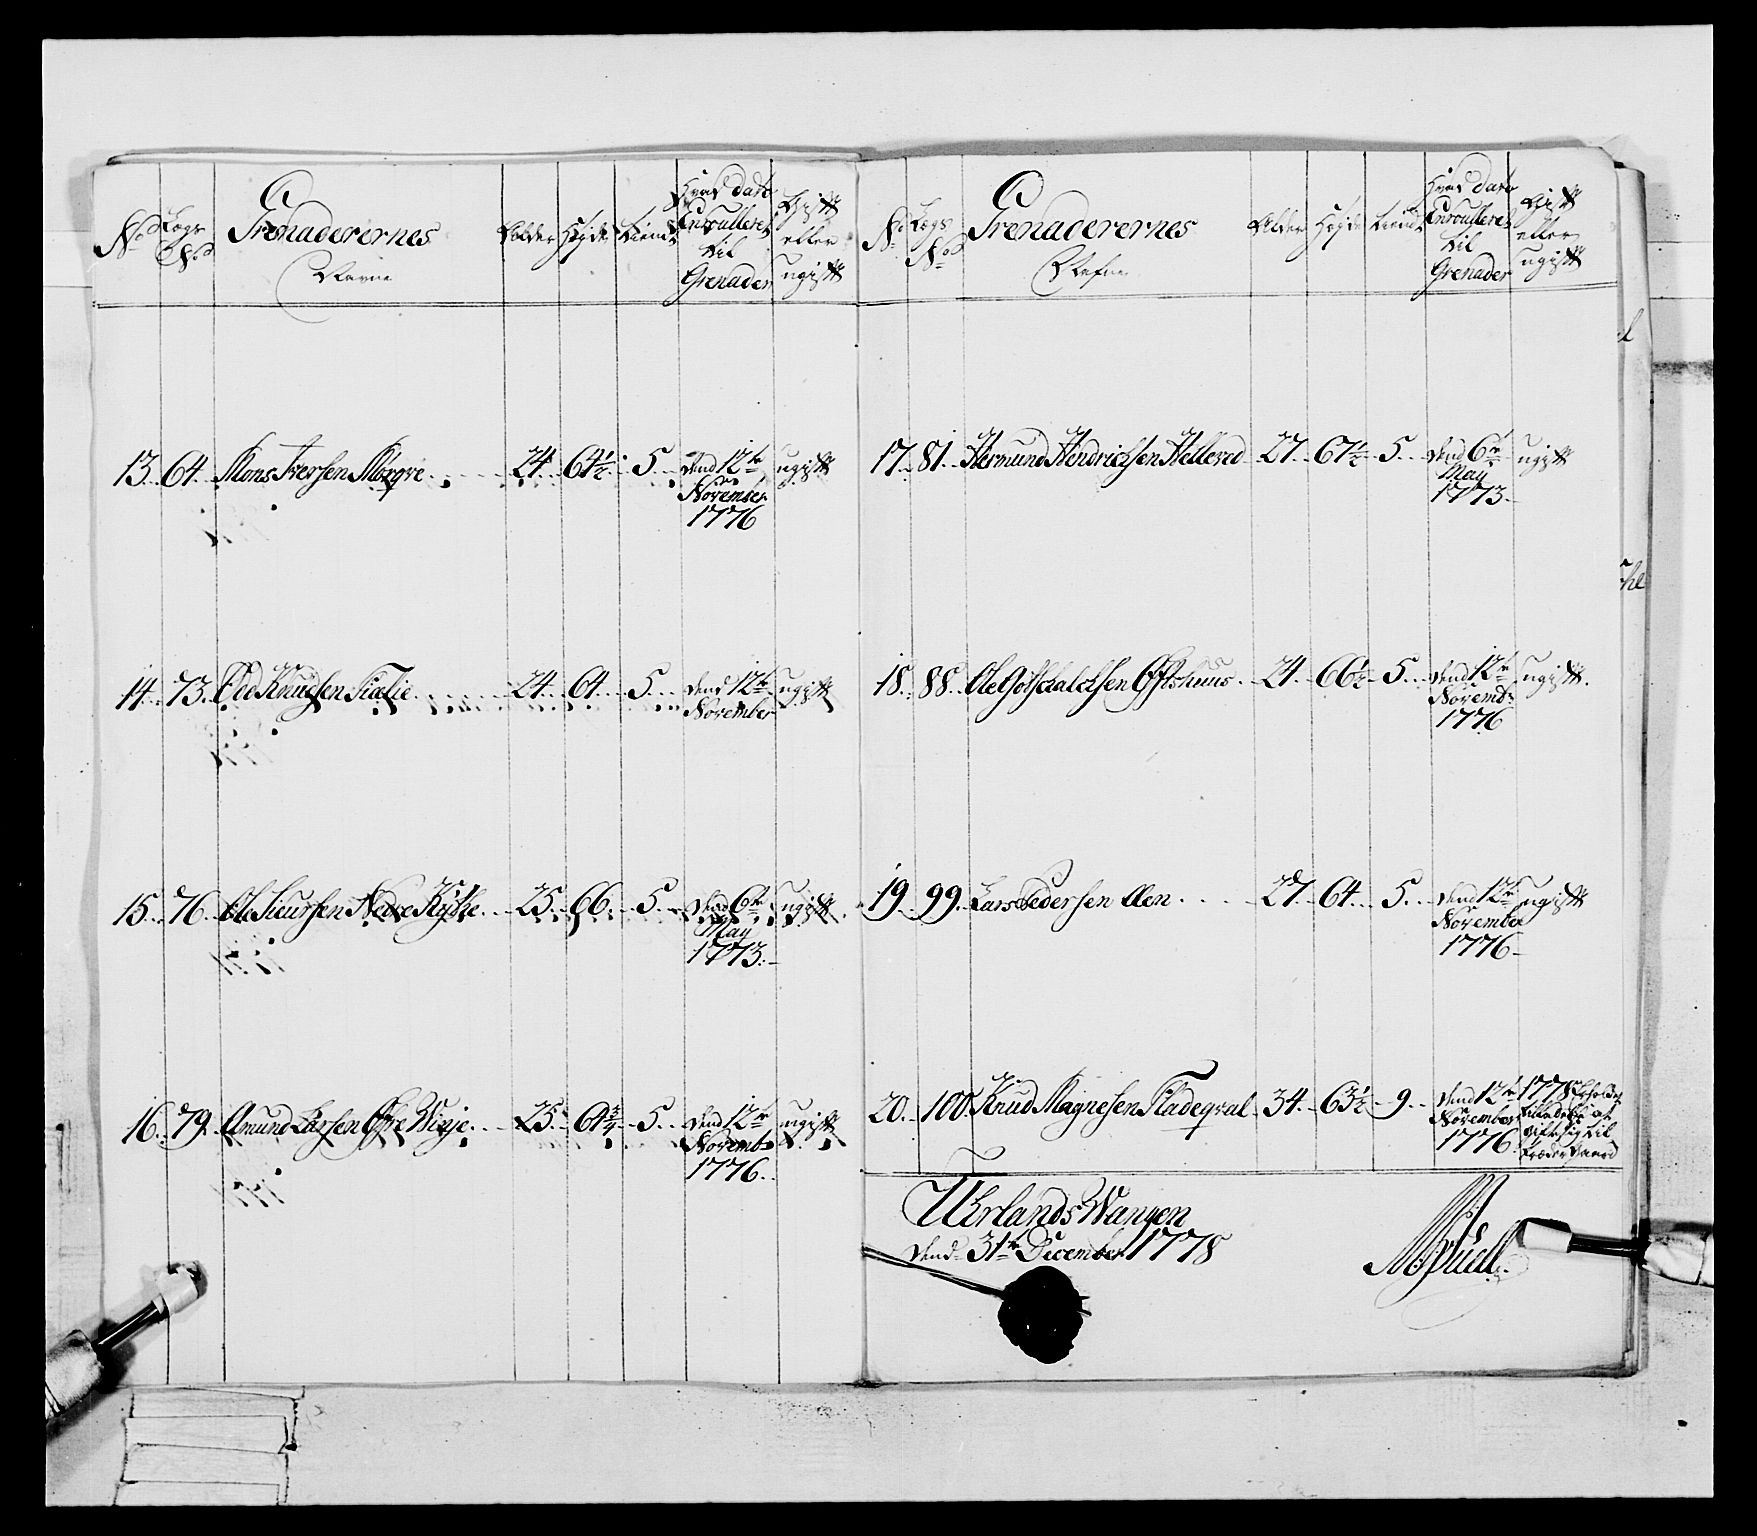 No Lægs No Grenaderernes Navne Alder Høyde tienst Hvad dato Enroulleret til Grenader Gift eller ugift
13. 64. Mons Iversen Morqve 24. 64½ 5. dend 12te November 1776 ugift
14. 73. Odd Knudsen Sielie 24. 64. 5. dend 12te November ugift
15. 76. Ole Siursen Nedre 25. 66. 5. den 6te May 1773. ugift
16. 79. Amund Larsen Øfre Winje 25. 64¾ 5. dend 12te Novemb: 1776. ugift
No Lægs No Grenaderernes Nafne Alder Høyde tienst Hvad dato Enroulleret til Grenader Gift eller ugift
17. 81. Hermund Hendrichsen Hellered 27. 67½ 5. dend 6te May 1773. ugift
18. 88. Ole Gotschalchsen 24. 66½ 5. dend 12te Novemb: 1776 ugift.
19. 99. Lars Pedersen Øen 27. 64. 5. dend 12te November 1776 ugift
20. 100. Knud Magnesen Fladeqval 34. 63½ 9. dend 12te November 1776. 1778 at gifte sig til
Uhrlands Wangen
dend 31te December 1778